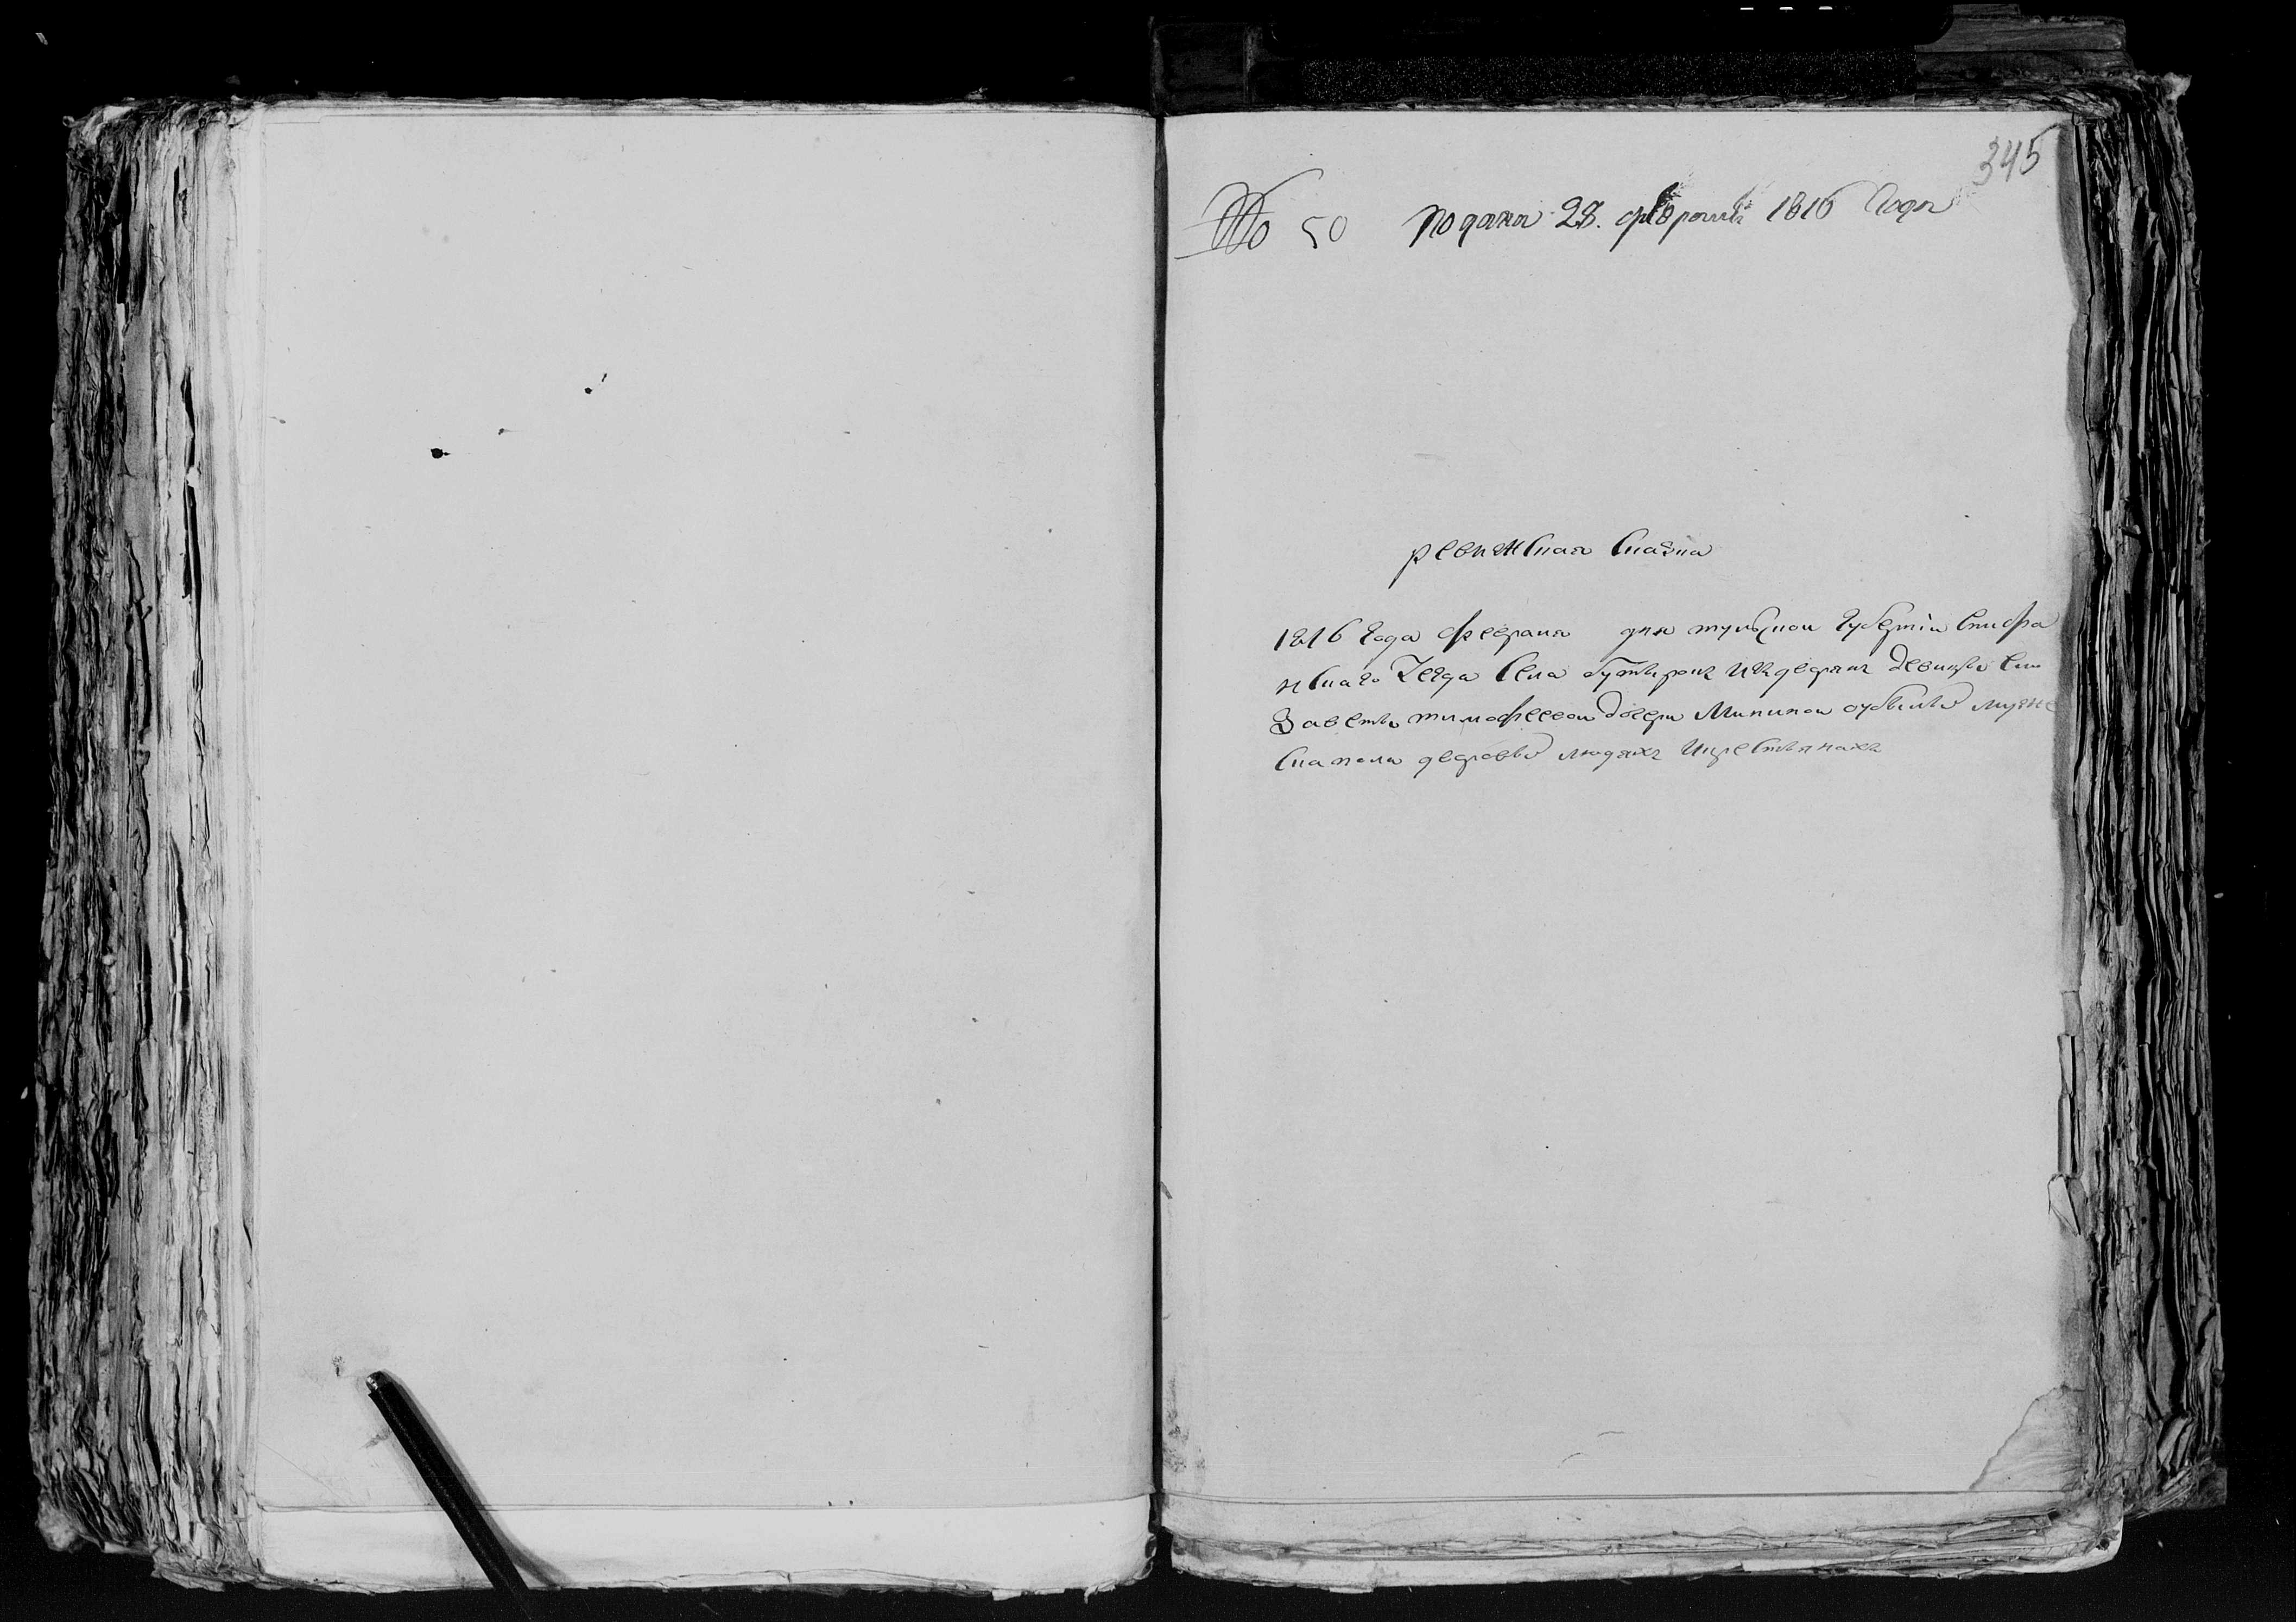 345
№ 50 подана 28. февраля 1816 года
ревижская сказка
1816 года февраля дня тульской губернiи епифа
нскаго уезда села бутырок деревни девицы ели
завета тимофеевой дочери Мининой о дворовых
людях и крестьянахъ